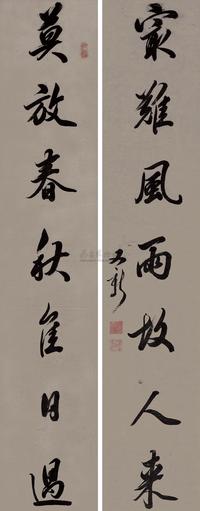 㝡難風雨故人来
莫放春秋佳日過